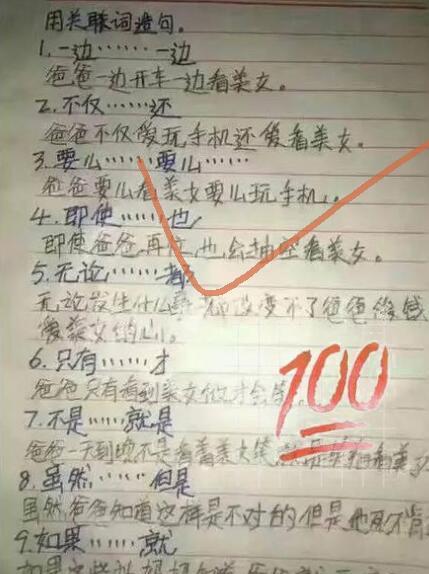 用关联词造句。
1.一边……一边
爸爸一边开车一边看美女。
2.不仅……还
爸爸不仅爱玩手机还爱看美女。
3.要么……要么……
爸爸要么看美女要么玩手机。
4.即使……也
即使爸爸再忙也会抽空看美女。
5.无论……都
无论发生什么事都改变不了爸爸
爱美女的心。
6.只有……才
爸爸只有看到美女他才会笑
100
7.不是……就是
爸爸一天到晚不是看着美女笑就是
8.虽然……但是
虽然爸爸知道这样是不对的但是他
9.如果……就
如果